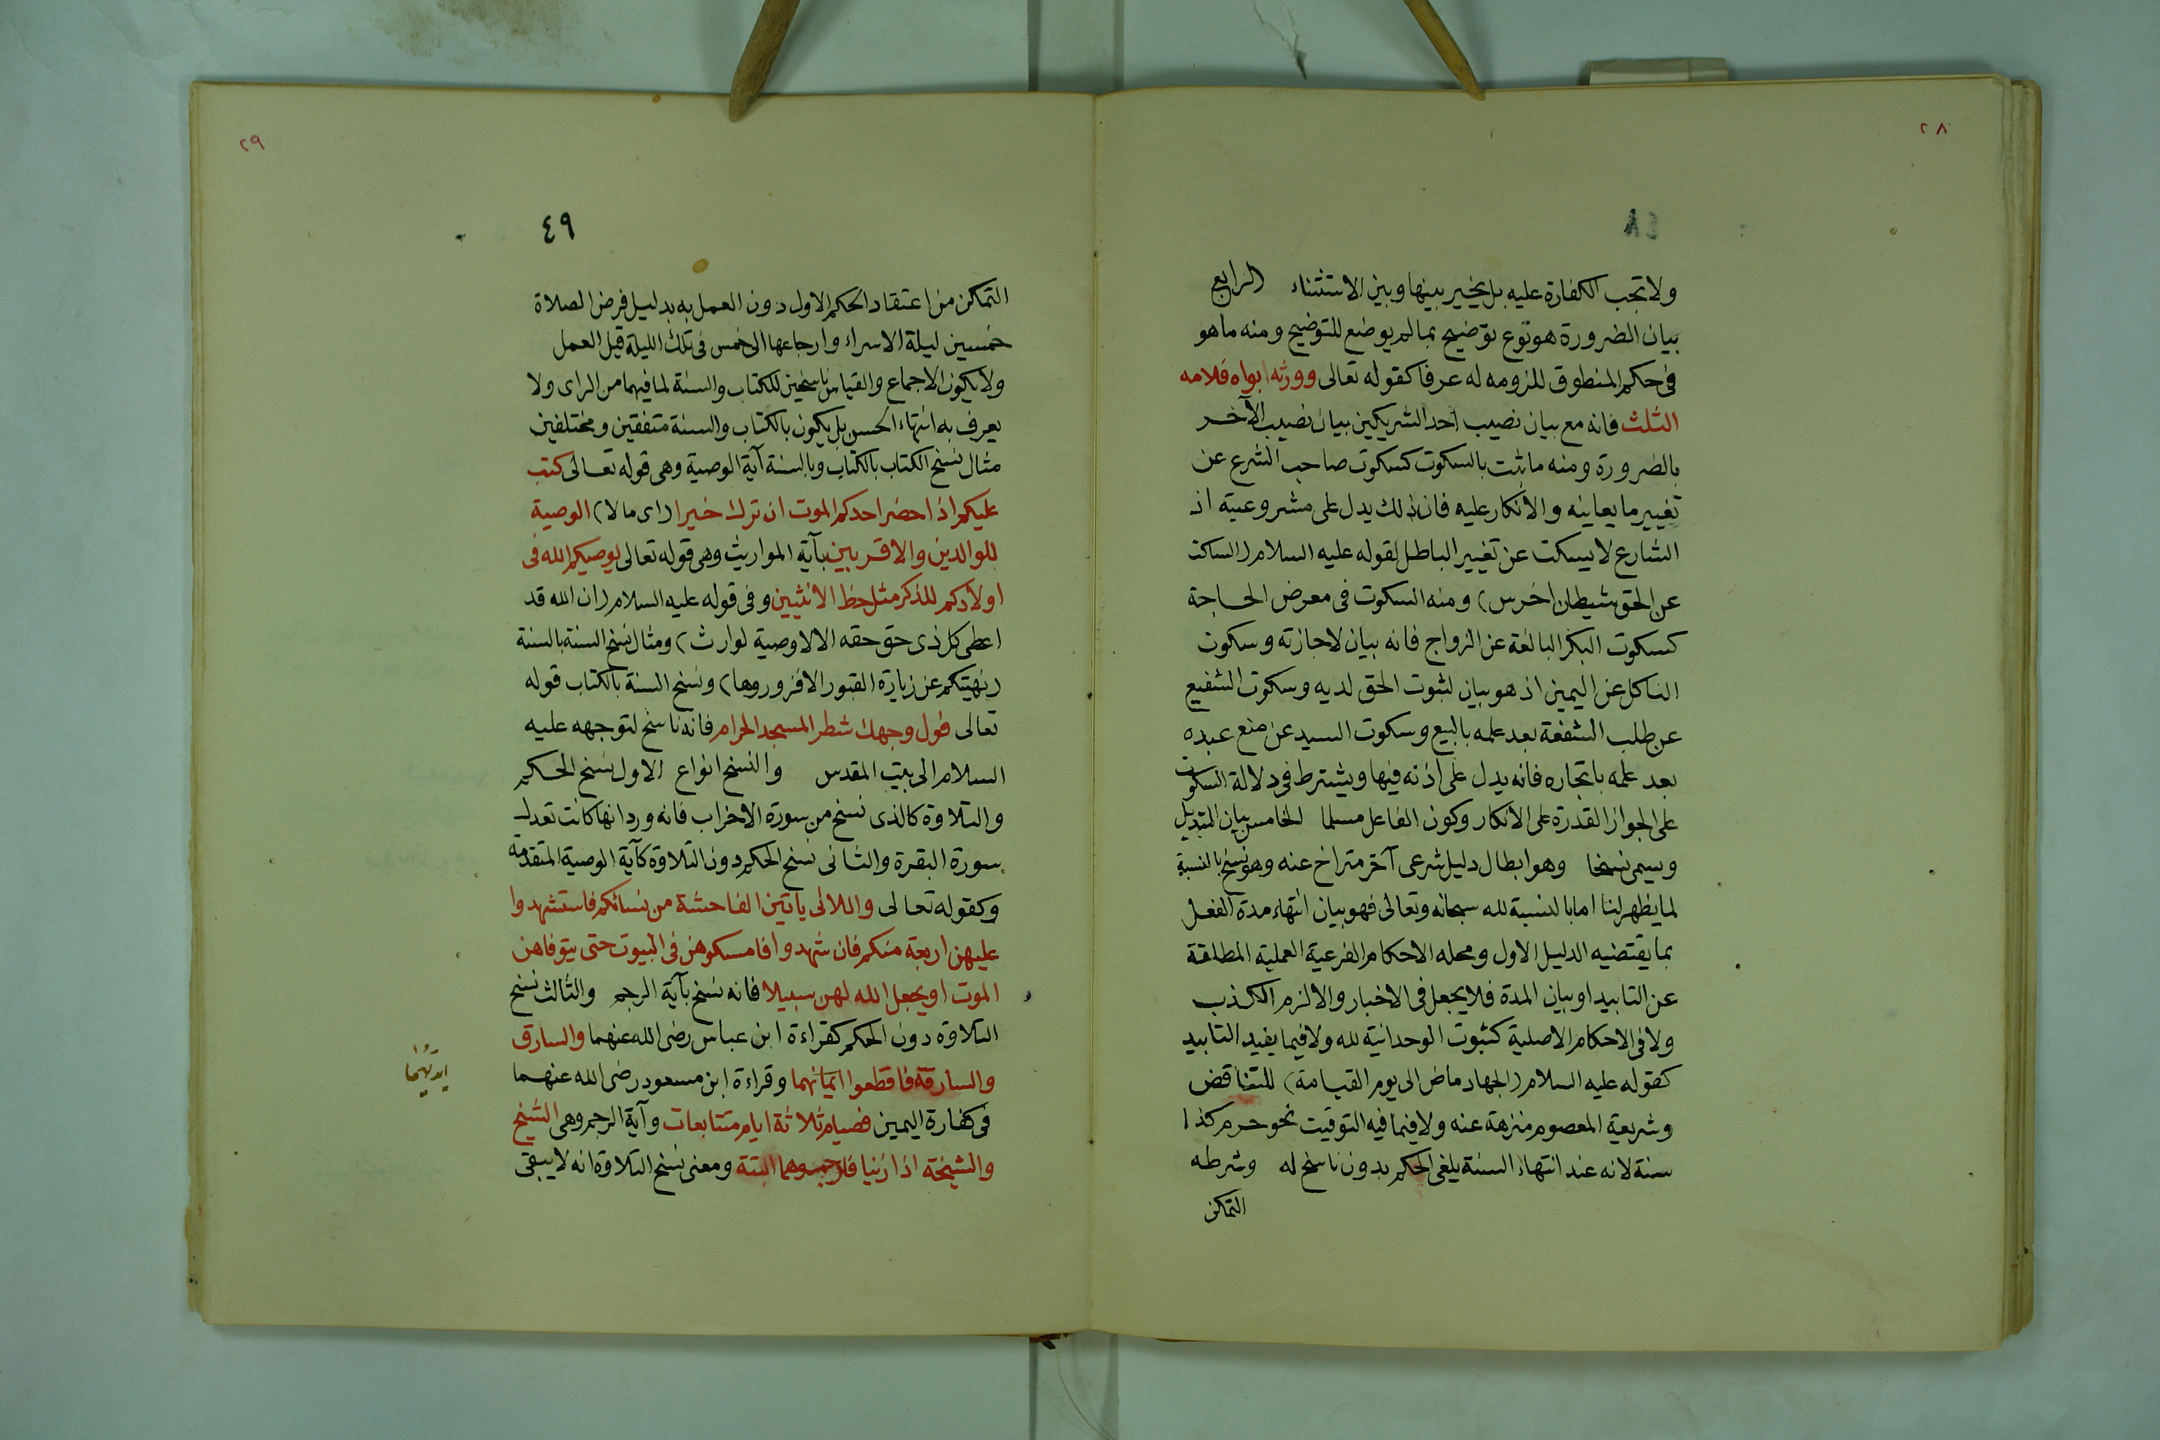 ٢٨
٤٨
ولا تجب الكفارة عليه بل يخير بينها وبين الاستثناء الرابع
بيان الضرورة هو نوع توضيح بما لم يوضع للتوضيح ومنه ما هو
فى حكم المنطوق للزومه له عرفا كقوله تعالى وورثه ابواه فلامه
الثلث فانه مع بيان نصيب احد الشريكين بيان نصيب الآخر
بالضرورة ومنه ما ثبت بالسكوت كسكوت صاحب الشرع عن
تغيير ما يعاينه والانكار عليه فان ذلك يدل على مشروعيته اذ
الشارع لا يسكت عن تغيير الباطل لقوله عليه السلام (الساكت
عن الحق شيطان اخرس) ومنه السكوت فى معرض الحاجة
كسكوت البكر البالغة عن الزواج فانه بيان لاجازته وسكوت
الناكل عن اليمين اذ هو بيان لثبوت الحق لديه وسكوت الشفيع
عن طلب الشفعة بعد علمه بالبيع وسكوت السيد عن منع عبده
بعد علمه باتجاره فانه يدل على اذنه فيها ويشترط فى دلالة السكوت
على الجواز القدرة على الانكار وكون الفاعل مسلما الخامس بيان التبديل
ويسمى نسخا وهو ابطال دليل شرعى آخر متراخ عنه وهو نسخ بالنسبة
لما يظهر لنا اما بالنسبة لله سبحانه وتعالى فهو بيان انتهاء مدة الفعل
بما يقتضيه الدليل الاول ومحله الاحكام الفرعية العملية المطلقة
عن التابيد او بيان المدة فلا يجعل فى الاخبار والا لزم الكذب
ولا فى الاحكام الاصلية كثبوت الوحدانية لله ولا فيما يفيد التابيد
كقوله عليه السلام (الجهاد ماض الى يوم القيامة) للتناقض
وشريعة المعصوم منزهة عنه ولا فيما فيه التوقيت نحو حرم كذا
سنة لانه عند انتهاء السنة يلغى الحكم بدون ناسخ له وشرطه
التمكن
٢٩
٤٩
التمكن من اعتقاد الحكم الاول دون العمل به بدليل فرض الصلاة
خمسين ليلة الاسراء وارجاعها الى خمس فى تلك الليلة قبل العمل
ولا يكون الاجماع والقياس ناسخين للكتاب والسنة لما فيهما من الراى ولا
يعرف به انتهاء الحسن بل يكون بالكتاب والسنة متفقين ومختلفين
مثال نسخ الكتاب بالكتاب وبالسنة آية الوصية وهى قوله تعالى كتب
عليكم اذا حضر احدكم الموت ان ترك خيرا (اى مالا) الوصية
للوالدين والاقربين بآية المواريث وهى قوله تعالى يوصيكم الله فى
اولادكم للذكر مثل حظ الانثيين وفى قوله عليه السلام (ان الله قد
اعطى كل ذى حق حقه الا لا وصية لوارث) ومثال نسخ السنة بالسنة
(نهيتكم عن زيارة القبور الا فزوروها) ونسخ السنة بالكتاب قوله
تعالى فول وجهك شطر المسجد الحرام فانه ناسخ لتوجهه عليه
السلام الى بيت المقدس والنسخ انواع الاول نسخ الحكم
والتلاوة كالذى نسخ من سورة الاحزاب فانه ورد انها كانت تعدل
سورة البقرة والثانى نسخ الحكم دون التلاوة كآية الوصية المتقدمة
وكقوله تعالى واللاتى ياتين الفاحشة من نسائكم فاستشهدوا
عليهن اربعة منكم فان شهدوا فامسكوهن فى البيوت حتى يتوفاهن
الموت او يجعل الله لهن سبيلا فانه نسخ بآية الرجم والثالث نسخ
التلاوة دون الحكم كقراءة ابن عباس رضى الله عنهما والسارق
والسارقة فاقطعوا ايمانهما وقراءة ابن مسعود رضى الله عنهما
ايديهما
فى كفارة اليمين فصيام ثلاثة ايام متتابعات وآية الرجم وهى الشيخ
والشيخة اذا زنيا فارجموهما البتة ومعنى نسخ التلاوة انه لا يبقى